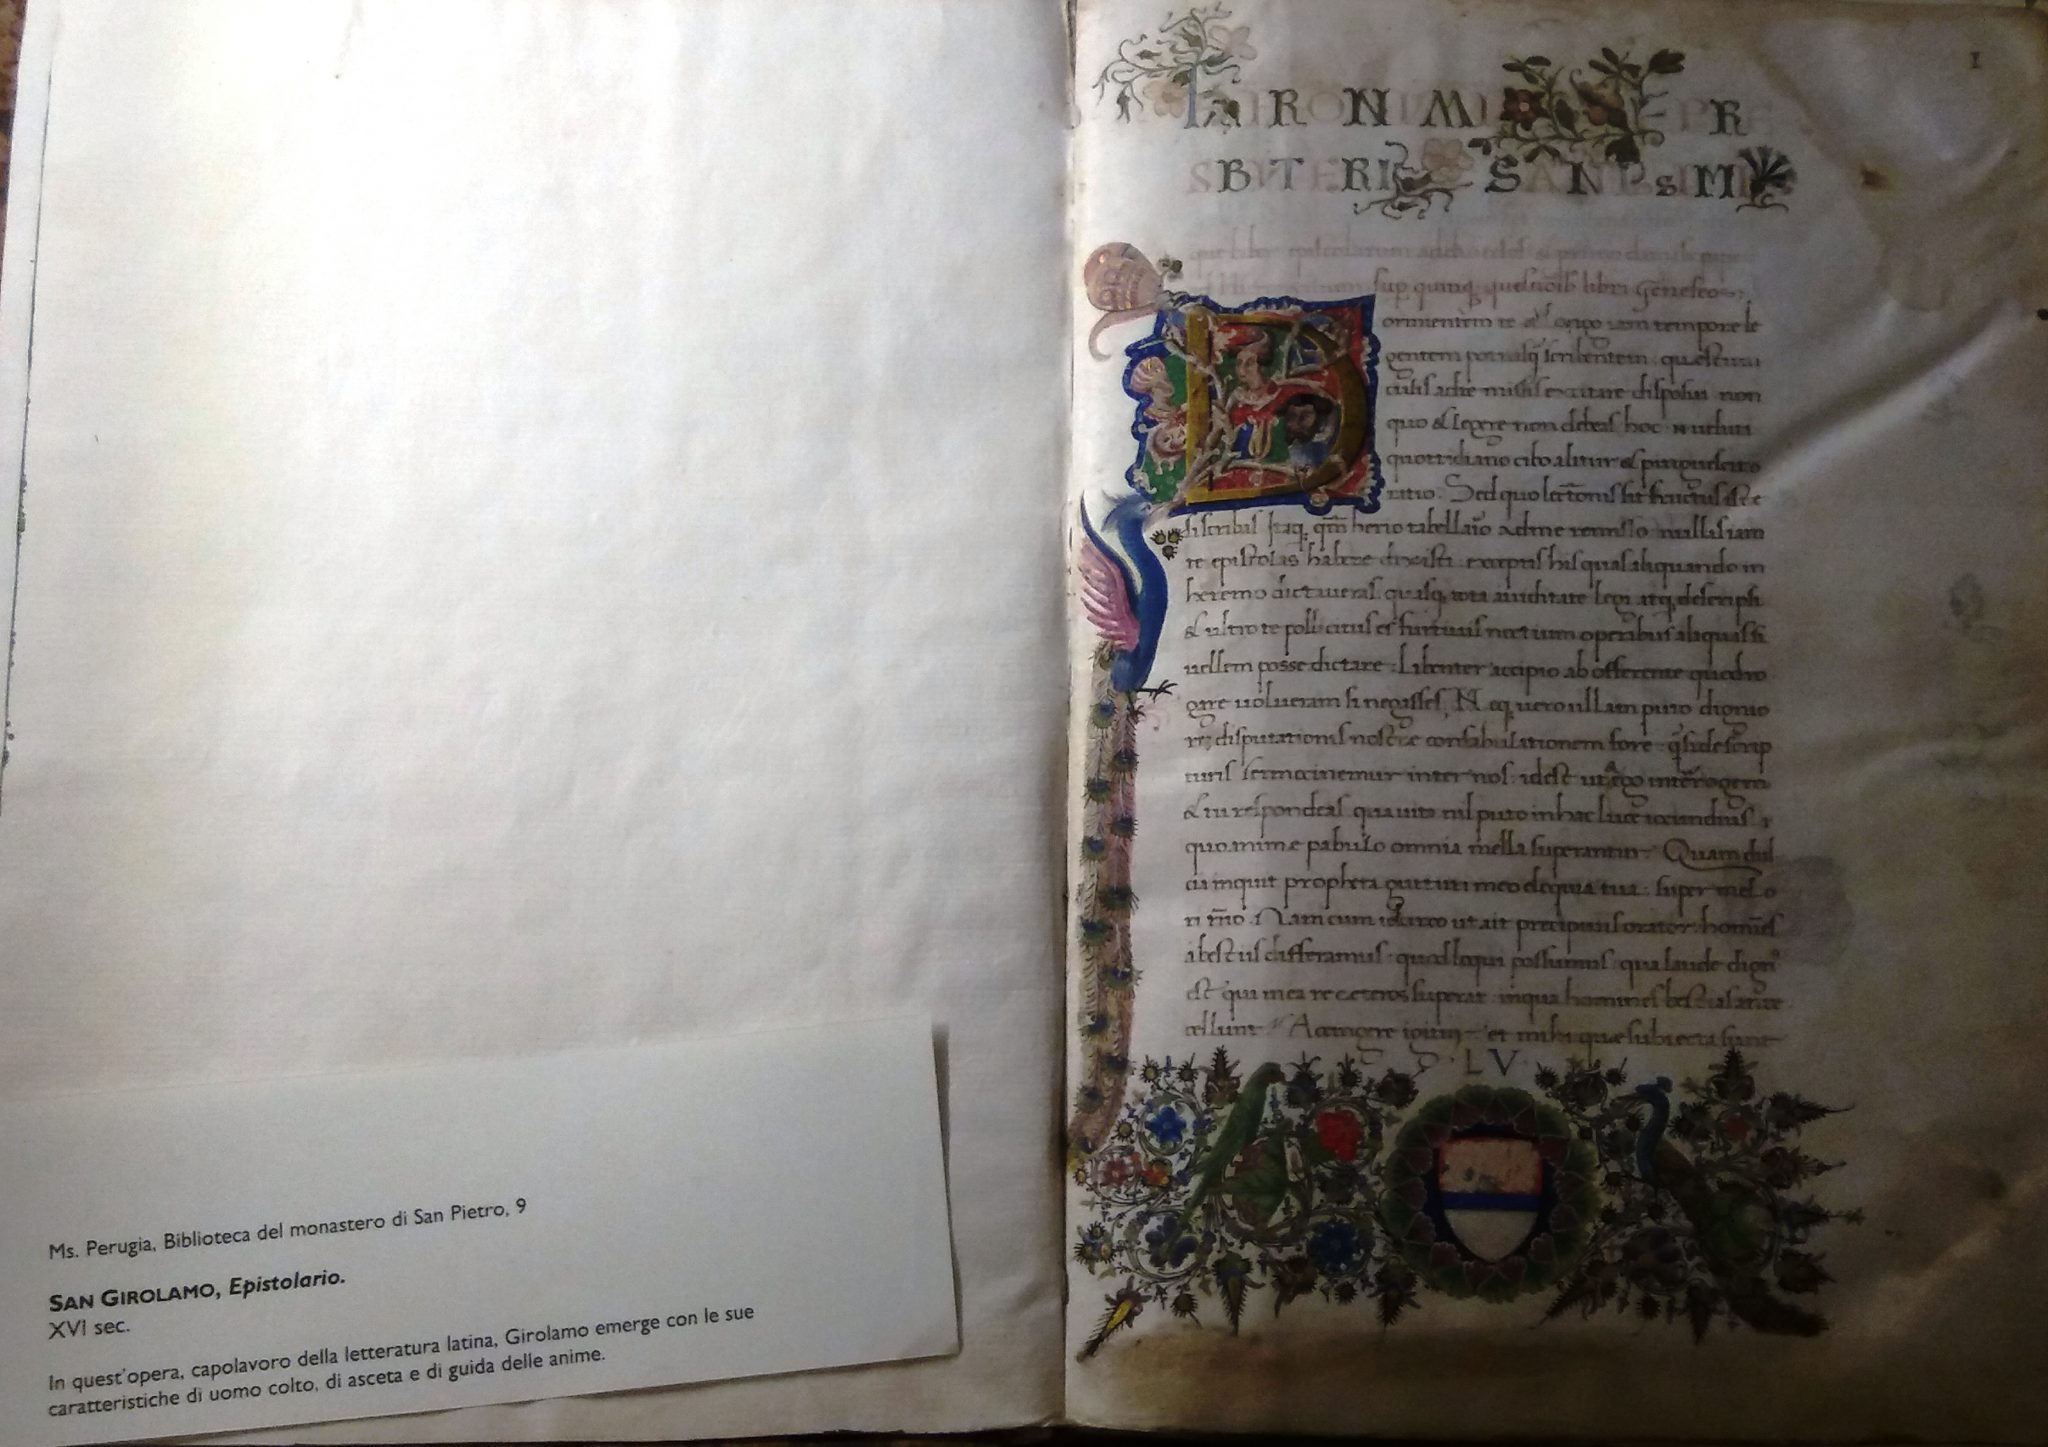 Ms. Perugia, Biblioteca del monastero di San Pietro, 9
SAN GIROLAMO, Epistolario.
XVI sec.
In quest'opera, capolavoro della letteratura latina, Girolamo emerge con le sue
caratteristiche di uomo colto, di asceta e di guida delle anime.
I
sup quinq questioib libri geneseos
ormientem te & longo iam tempore le
gentem potiusq scribentem questiun
culis ad te missis excitare disposui non
quo & legere non debeas hoc ueluti
quottidiano cibo alitur & pinguescit o
ratio. Sed quo lectionis sit fructus iste
si scribas Itaq qm herio tabellario ad me remisso nullas iam
te epistolas habere dixisti exceptis his quas aliquando in
heremo dictaueras quasq tota auiditate legi atq descripsi
& ultro te pollicitus es furtiuis noctium operibus aliquas si
uellem posse dictare Libenter accipio ab offerente quod ro
gare uolueram si negasses Neq uero ullam puto dignio
re disputationis nostre confabulationem fore q si de scrip
turis sermocinemur inter nos idest ut ego interrogem
& tu respondeas qua uita nil puto in hac luce iocundius
quo anime pabulo omnia mella superantur Quam dul
cia inquit propheta gutturi meo eloquia tua super mel o
ri meo Nam cum idcirco ut ait precipuus orator homies
a bestiis differamus quod loqui possumus qua laude dign
est qui in ea re ceteros superat in qua homines bestias ante
cellunt Accingere igitur et mihi que subiecta sunt
LV